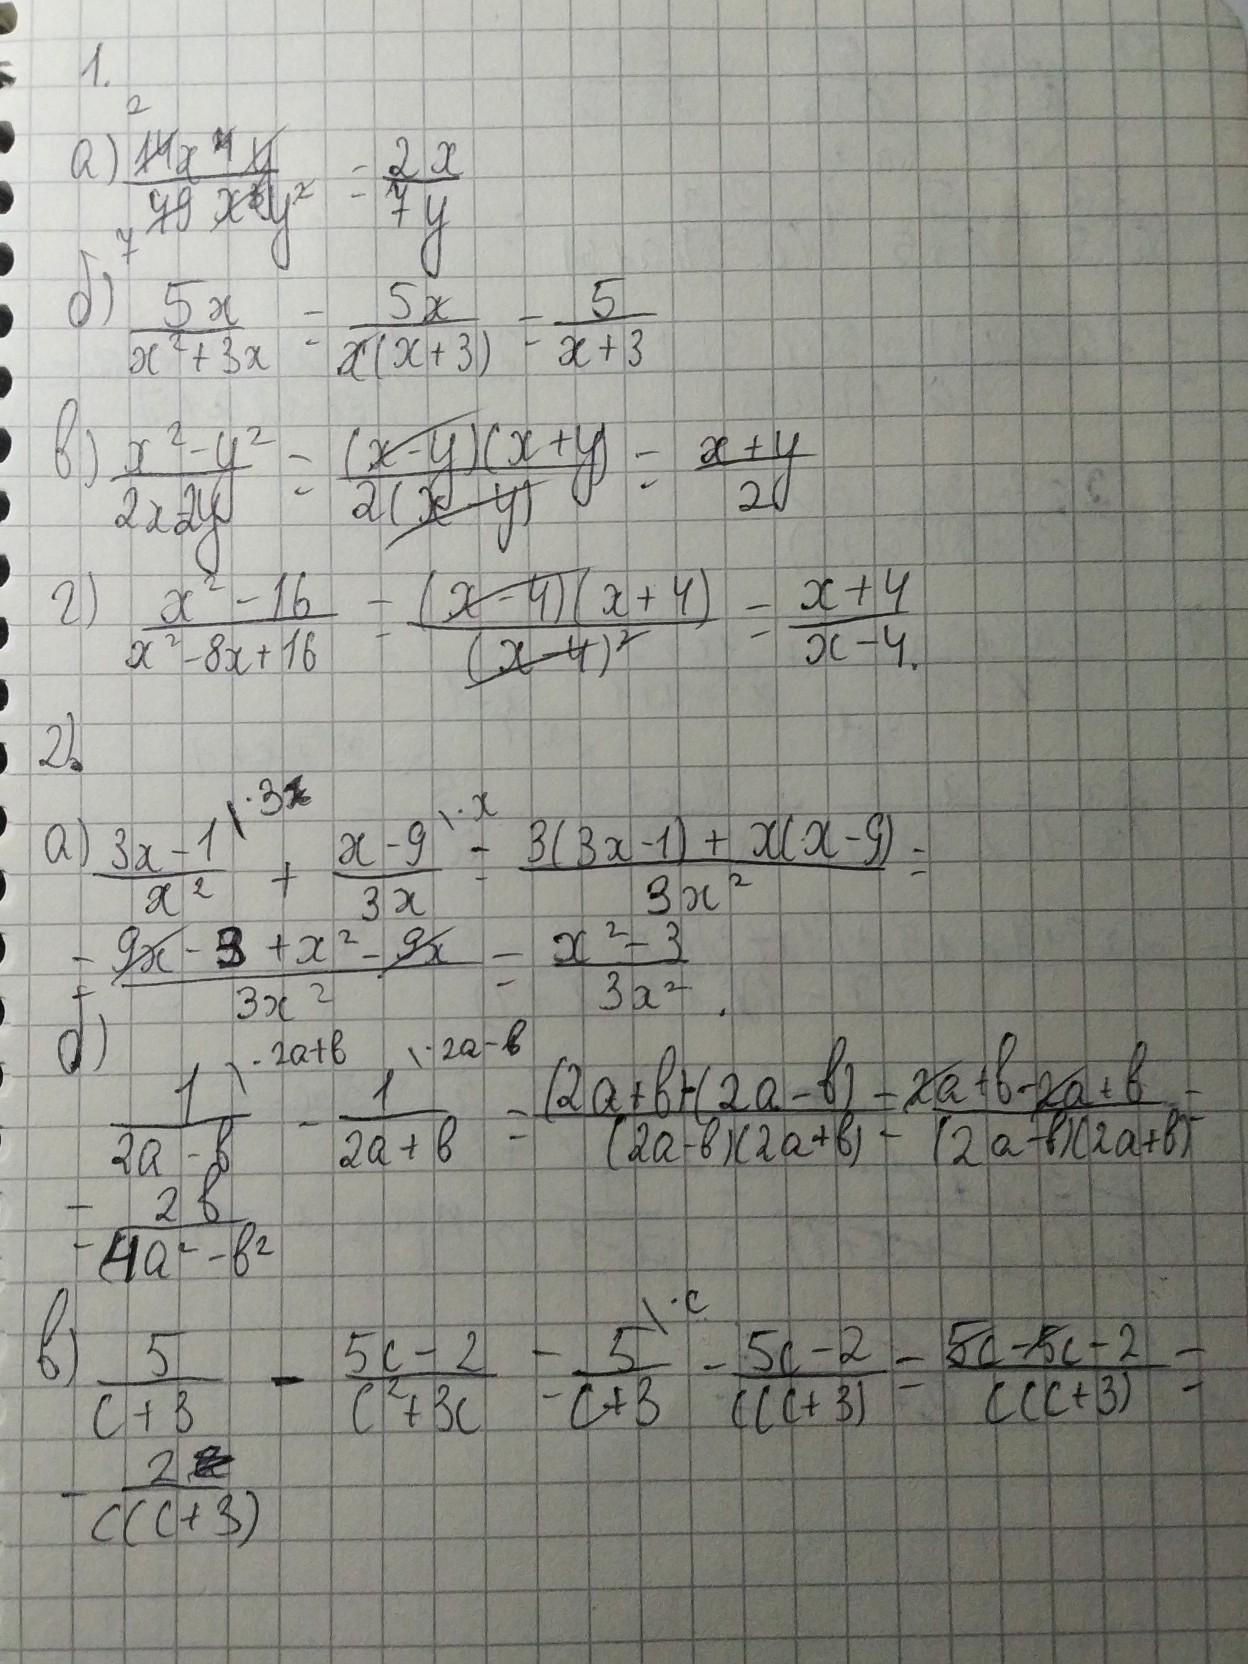 1.
а) 14x⁴y / 49x³y² = 2x / 7y
2
7
б) 5x / x²+3x = 5x / x(x+3) = 5 / x+3
в) x²-y² / 2x-2y = (x-y)(x+y) / 2(x-y) = x+y / 2
г) x²-16 / x²-8x+16 = (x-4)(x+4) / (x-4)² = x+4 / x-4.
2.
а) 3x-1 / x² \·3 + x-9 / 3x \·x = 3(3x-1)+x(x-9) / 3x² =
= 9x-3+x²-9x / 3x² = x²-3 / 3x².
б)
1 / 2a-b \·2a+b - 1 / 2a+b \·2a-b = (2a+b)-(2a-b) / (2a-b)(2a+b) = 2a+b-2a+b / (2a-b)(2a+b) =
= 2b / 4a²-b²
в) 5 / c+3 - 5c-2 / c²+3c = 5 / c+3 \·c - 5c-2 / c(c+3) = 5c-5c-2 / c(c+3) =
- 2 / c(c+3)